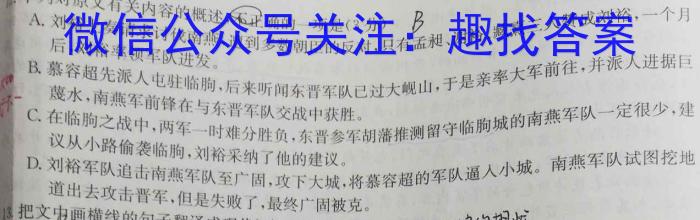 对原文有关内容的概述,不正确的一项是(3分) B
A. 刘
微信公众号关注:趣找答案
只有孟昶 一个月
后 率领军队进发。
B. 慕容超先派人屯驻临朐,后来听闻东晋军队已过大岘山,于是亲率大军前往,并派人进据巨
蔑水,南燕军前锋在与东晋军队交战中获胜。
C. 在临朐之战中,两军一时难分胜负,东晋参军胡藩推测留守临朐城的南燕军队一定很少,建
议从小路偷袭临朐,刘裕采纳了他的建议。
D. 刘裕军队追击南燕军队至广固,攻下大城,将慕容超的军队逼入小城。南燕军队试图挖地
道出去攻击晋军,但是失败了,最终广固被克。
13. 把文中画横线的句子翻译成现代